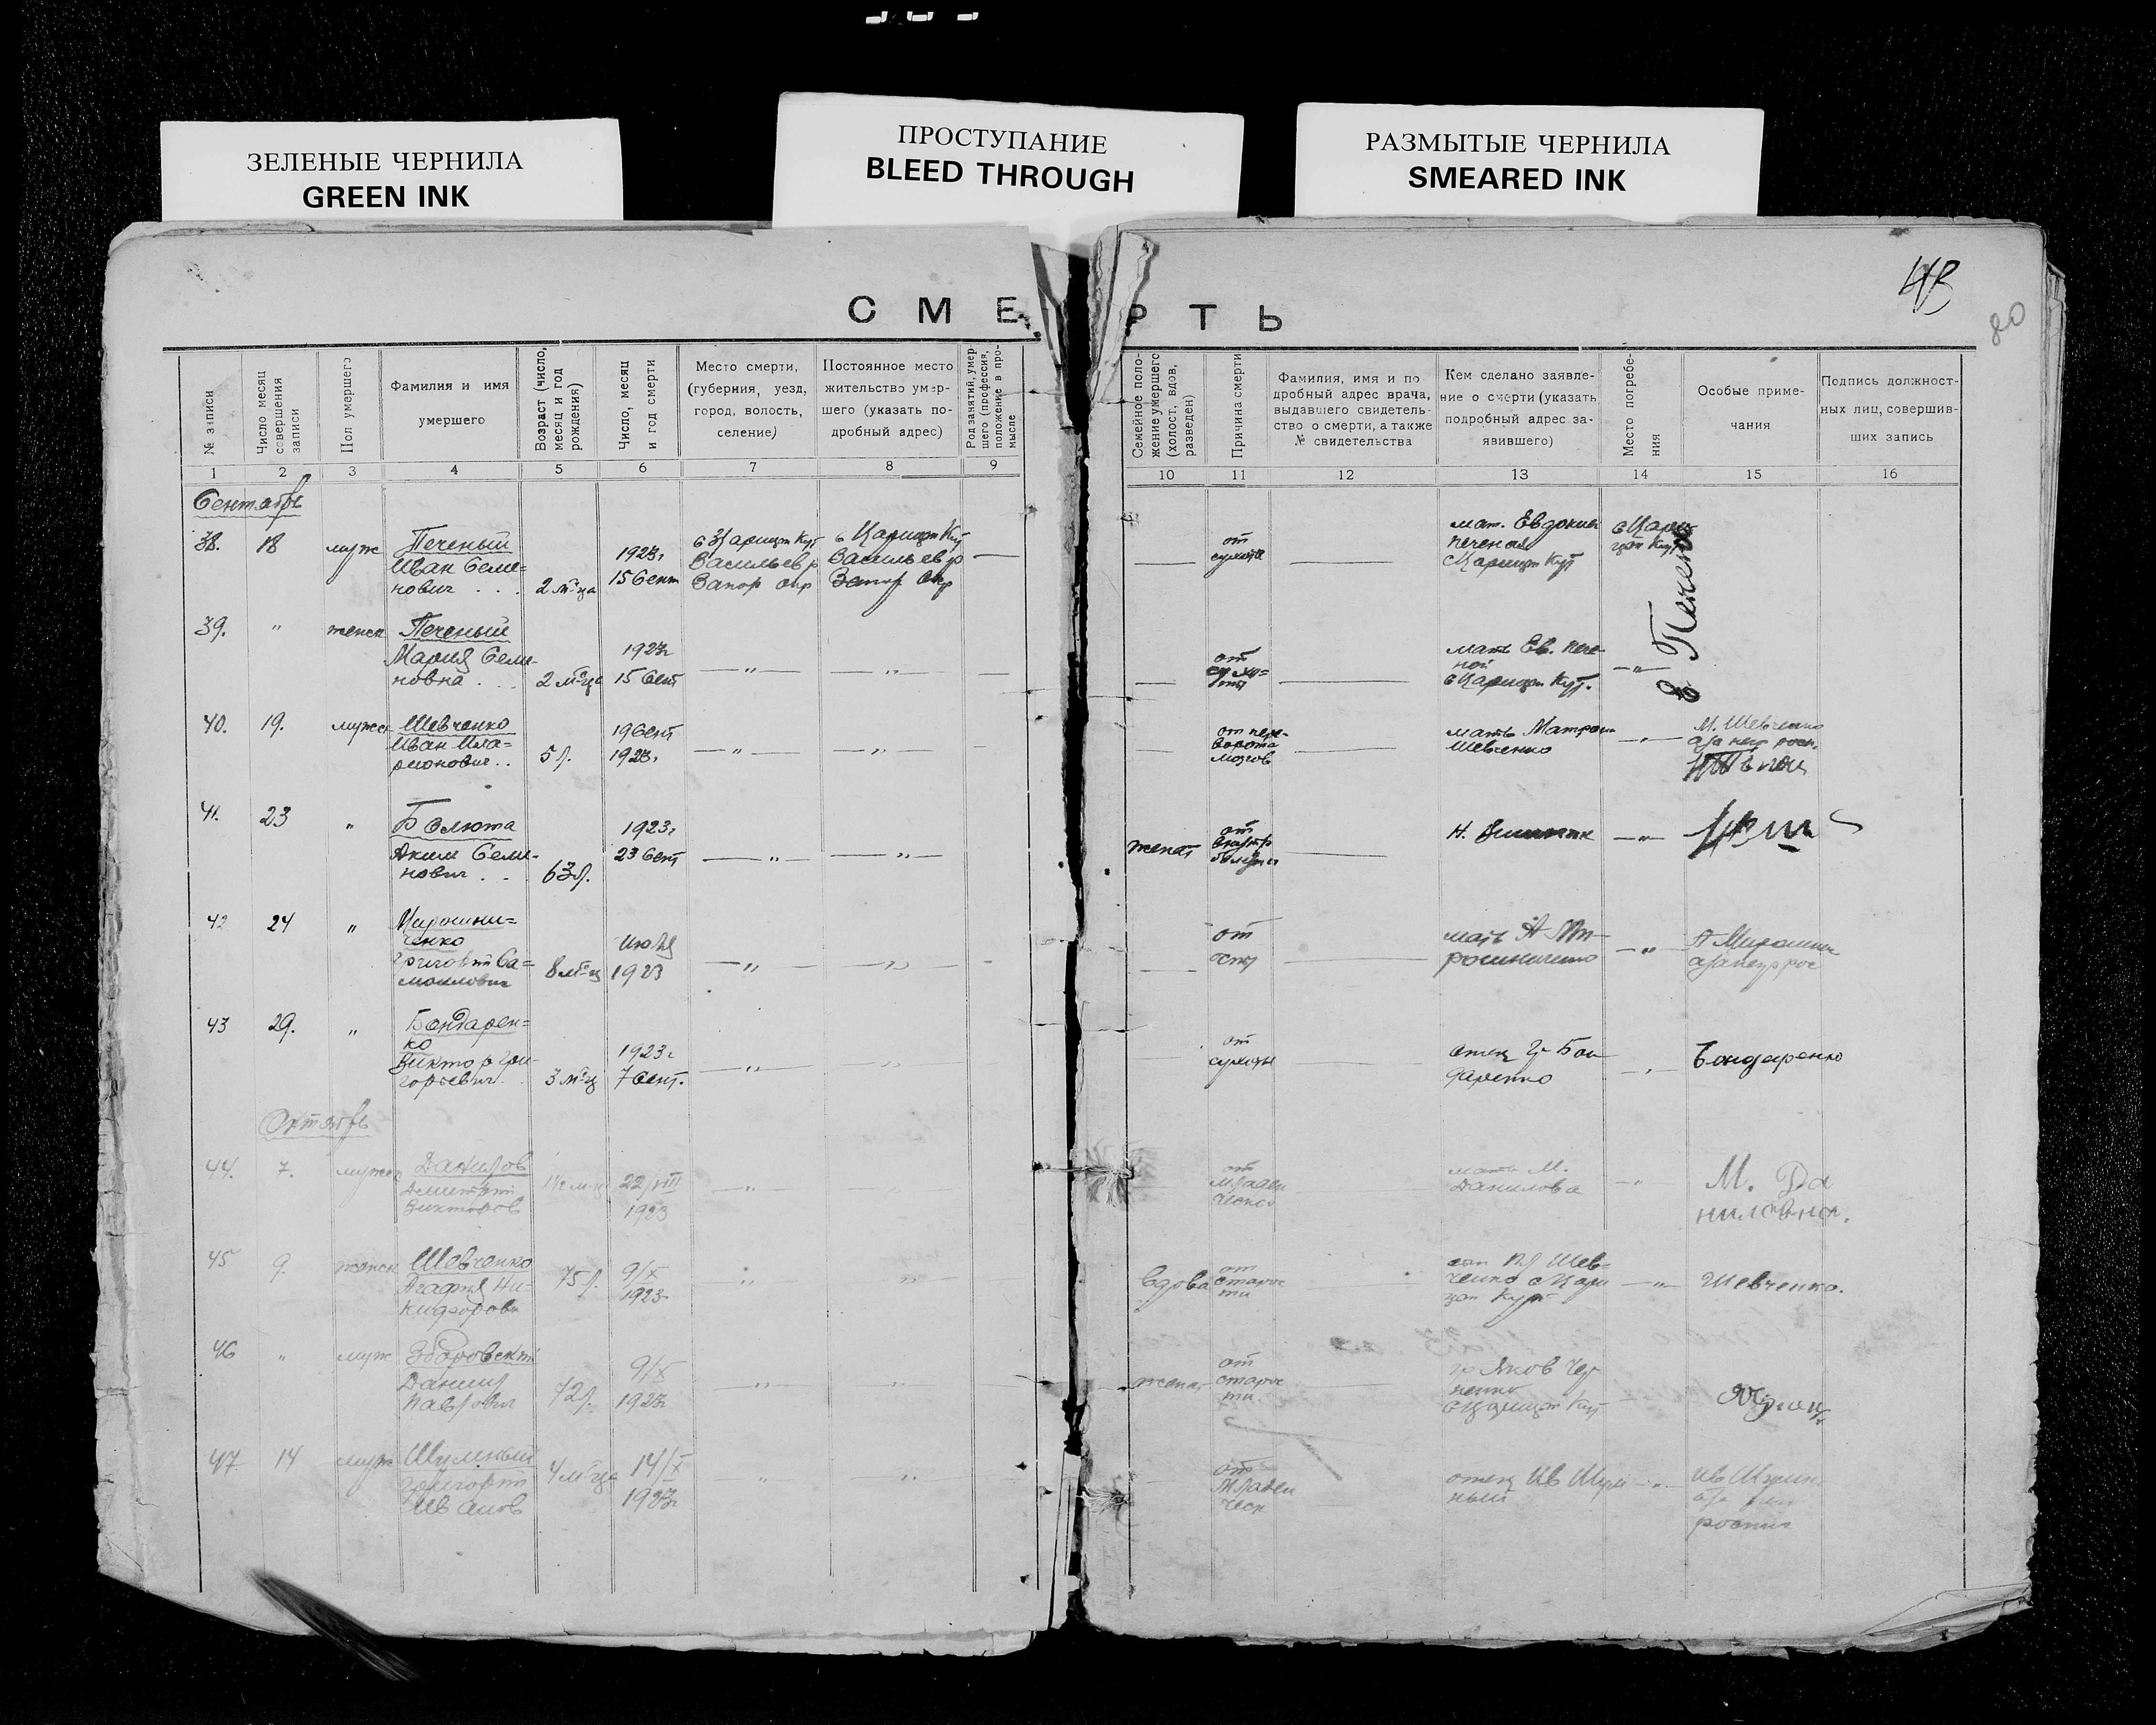 ЗЕЛЕНЫЕ ЧЕРНИЛА
GREEN INK
ПРОСТУПАНИЕ
BLEED THROUGH
РАЗМЫТЫЕ ЧЕРНИЛА
SMEARED INK
80
СМЕРТЬ
№ записи
Число месяц
совершения
записи
Пол умершего
Фамилия и имя
умершего
Возраст (число,
месяц и год
рождения)
Число, месяц
и год смерти
Место смерти,
(губерния, уезд,
город, волость,
селение)
Постоянное место
жительство умер-
шего (указать по-
дробный адрес)
Род занятий, умер
шего (профессия,
положение в про-
мысле
Семейное поло-
жение умершего
(холост, вдов,
разведен)
Причина смерти
Фамилия, имя и по
дробный адрес врача,
выдавшего свидетель-
ство о смерти, а также
№ свидетельства
Кем сделано заявле-
ние о смерти (указать
подробный адрес за-
явившего)
Место погребе-
ния
Особые приме-
чания
Подпись должност-
ных лиц, совершив-
ших запись
1 2 3 4 5 6 7 8 9 10 11 12 13 14 15 16
Сентябрь
38. 18 муж Печеный
Иван Семе-
нович
2 м-ца
1923г
15 Сент
с Царицын Кут
Васильев р
Запор окр
с Царицын Кут
Васильев р
Запор окр
от
сухоты
мат. Евдокия
Печеная
с Царицын Кут
с Цари
цын Кут
39. " женск Печеный
Мария Семе-
новна
2 м-ца
1923г
15 Сент
" "
от
сухо=
ты
мать Ев. Пече-
ной
с Царицын Кут.
"
Е Печеной
40. 19. мужск Шевченко
Иван Ила=
рионович
5 л.
19 Сент
1923г
" "
от пере-
ворота
мозгов
мать Матрона
Шевченко
"
М. Шевченко
41. 23 " Болюта
Аким Семе-
нович
63 л.
1923г
23 Сент
" "
женат
от
"
42 24 " Мирошни=
ченко
8 м-ц
Июля
1923
" "
от
оспы
мать А Ми-
рошниченко
"
А Мирошни
43 29. " Бондарен=
ко
Виктор Гри-
горьевич
3 м-ц
1923г
7 Сент.
" "
от
сухоты
отец Гр Бон
даренко
"
Бондаренко
Октябрь
44. 7. мужск Данилов
Дмитрий
Викторов
22/VIII
1923
" "
от
младен
ческо
мать М.
Данилова
"
М. Да
ниловна.
45 9. женск Шевченко
Агафия Ни-
кифоровн
75 л.
9/X
1923
" "
Вдова
от
старос
ти
Шев-
ченко с Цари
цын Кут
"
Шевченко.
46 " муж Зборовский
Даниил
Павлович
72 л.
9/X
1923г
" "
женат
от
старос
ти.
гр Яков
с Царицын Кут
47 14 муж Шумный
Григорий
Иванов
4 м-ца
14/X
1923г
" "
от
младен
ческ
отец Ив Шум
ный
"
Ив Шумн.